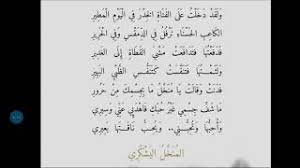 وَلَقَدْ دَخَلْتُ عَلَى الْفَتَاةِ الْخِدْرَ فِي الْيَوْمِ الْمَطِيرِ
الْكَاعِبِ الْحَسْنَاءِ تَرْفُلُ فِي الدِّمَقْسِ وَفِي الْحَرِيرِ
فَدَفَعْتُهَا فَتَدَافَعَتْ مَشْيَ الْقَطَاةِ إِلَى الْغَدِيرِ
وَلَثَمْتُهَا فَتَنَفَّسَتْ كَتَنَفُّسِ الظَّبْيِ الْبَهِيرِ
فَدَنَتْ وَقَالَتْ يَا مُنَخَّلُ مَا بِجِسْمِكَ مِنْ حَرُورِ
مَا شَفَّ جِسْمِي غَيْرُ حُبِّكِ فَاهْدَئِي عَنِّي وَسِيرِي
وَأُحِبُّهَا وَتُحِبُّنِي.. وَيُحِبُّ نَاقَتَهَا بَعِيرِي
الْمُنَخَّلُ الْيَشْكُرِيُّ